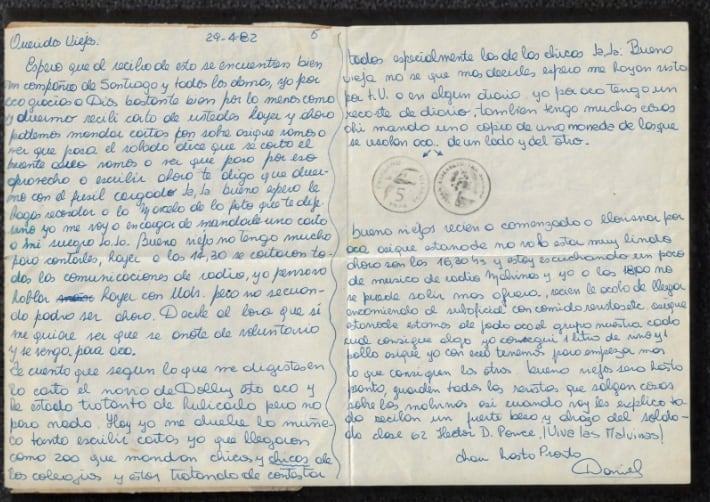 Queridos Viejos: 29-4-82
Espero que al recibo de esto se encuentren bien
en compañia de Santiago y todos los demas, yo por
aca gracias a Dios bastante bien por lo menos como
y duermo recibi carta de ustedes hayer y ahora
podemos mandar cartas por sobre asique vamos a
ver que pasa el sabado dice que se corta el
puente aereo vamos a ver que pasa por eso
aprovecho a escribir ahora te digo que duer-
mo con el fusil cargado Ja, Ja bueno espero le
hagas recordar a la Marcela de la foto que te dije
uno yo me voy a encargar de mandarle una carta
a mi suegro Ja. Ja. Bueno viejos no tengo mucho
para contarles, hayer a las 14,30 se cortaron to-
das las comunicaciones de radio, yo pensaba
hablar hayer con Uds. pero no se cuan-
do podra ser ahora. Decile al Lora que si
me quiere ver que se anote de voluntario
y se venga para aca.
Le cuento que segun lo que me digistes en
la carta el novio de Dolly esta aca y
lo estado tratando de hubicarlo pero no
paso nada. Hoy ya me duele la muñe-
ca tanto escribir cartas ya que llegaron
como 200 que mandan chicos y chicas de
los colegios y estoy tratando de contestar
todas especialmente las de las chicas Ja, Ja. Bueno
vieja no se que mas decirles espero me hayan visto
por t.V. o en algun diario yo por aca tengo un
recorte de diario, tambien tengo muchas cosas
ahi mando una copia de una moneda de las que
se usaban aca.. de un lado y del otro.
5
bueno viejos recien a comenzado a lloviznar por
aca asique esta noche no va a estar muy linda
ahora son las 16,30 hs y estoy escuchando un poco
de musica de radio Malvinas y ya a las 18,00 no
se puede salir mas afuera, recien le acaba de llegar
encomienda al suboficial con comida revistas etc. asique
esta noche estamos de joda aca el grupo nuestro cada
cual consigue algo yo consegui 1 litro de vino y 1
pollo asique ya con eso tenemos para empezar mas
lo que consiguen los otros bueno viejos sera hasta
pronto, guarden todas las revistas que salgan cosas
sobre las malvinas asi cuando voy les explico to-
do reciban un fuerte beso y abrazo del solda-
do clase 62 Hector D. Ponce. ¡Viva las Malvinas!
chau hasta Pronto
Daniel